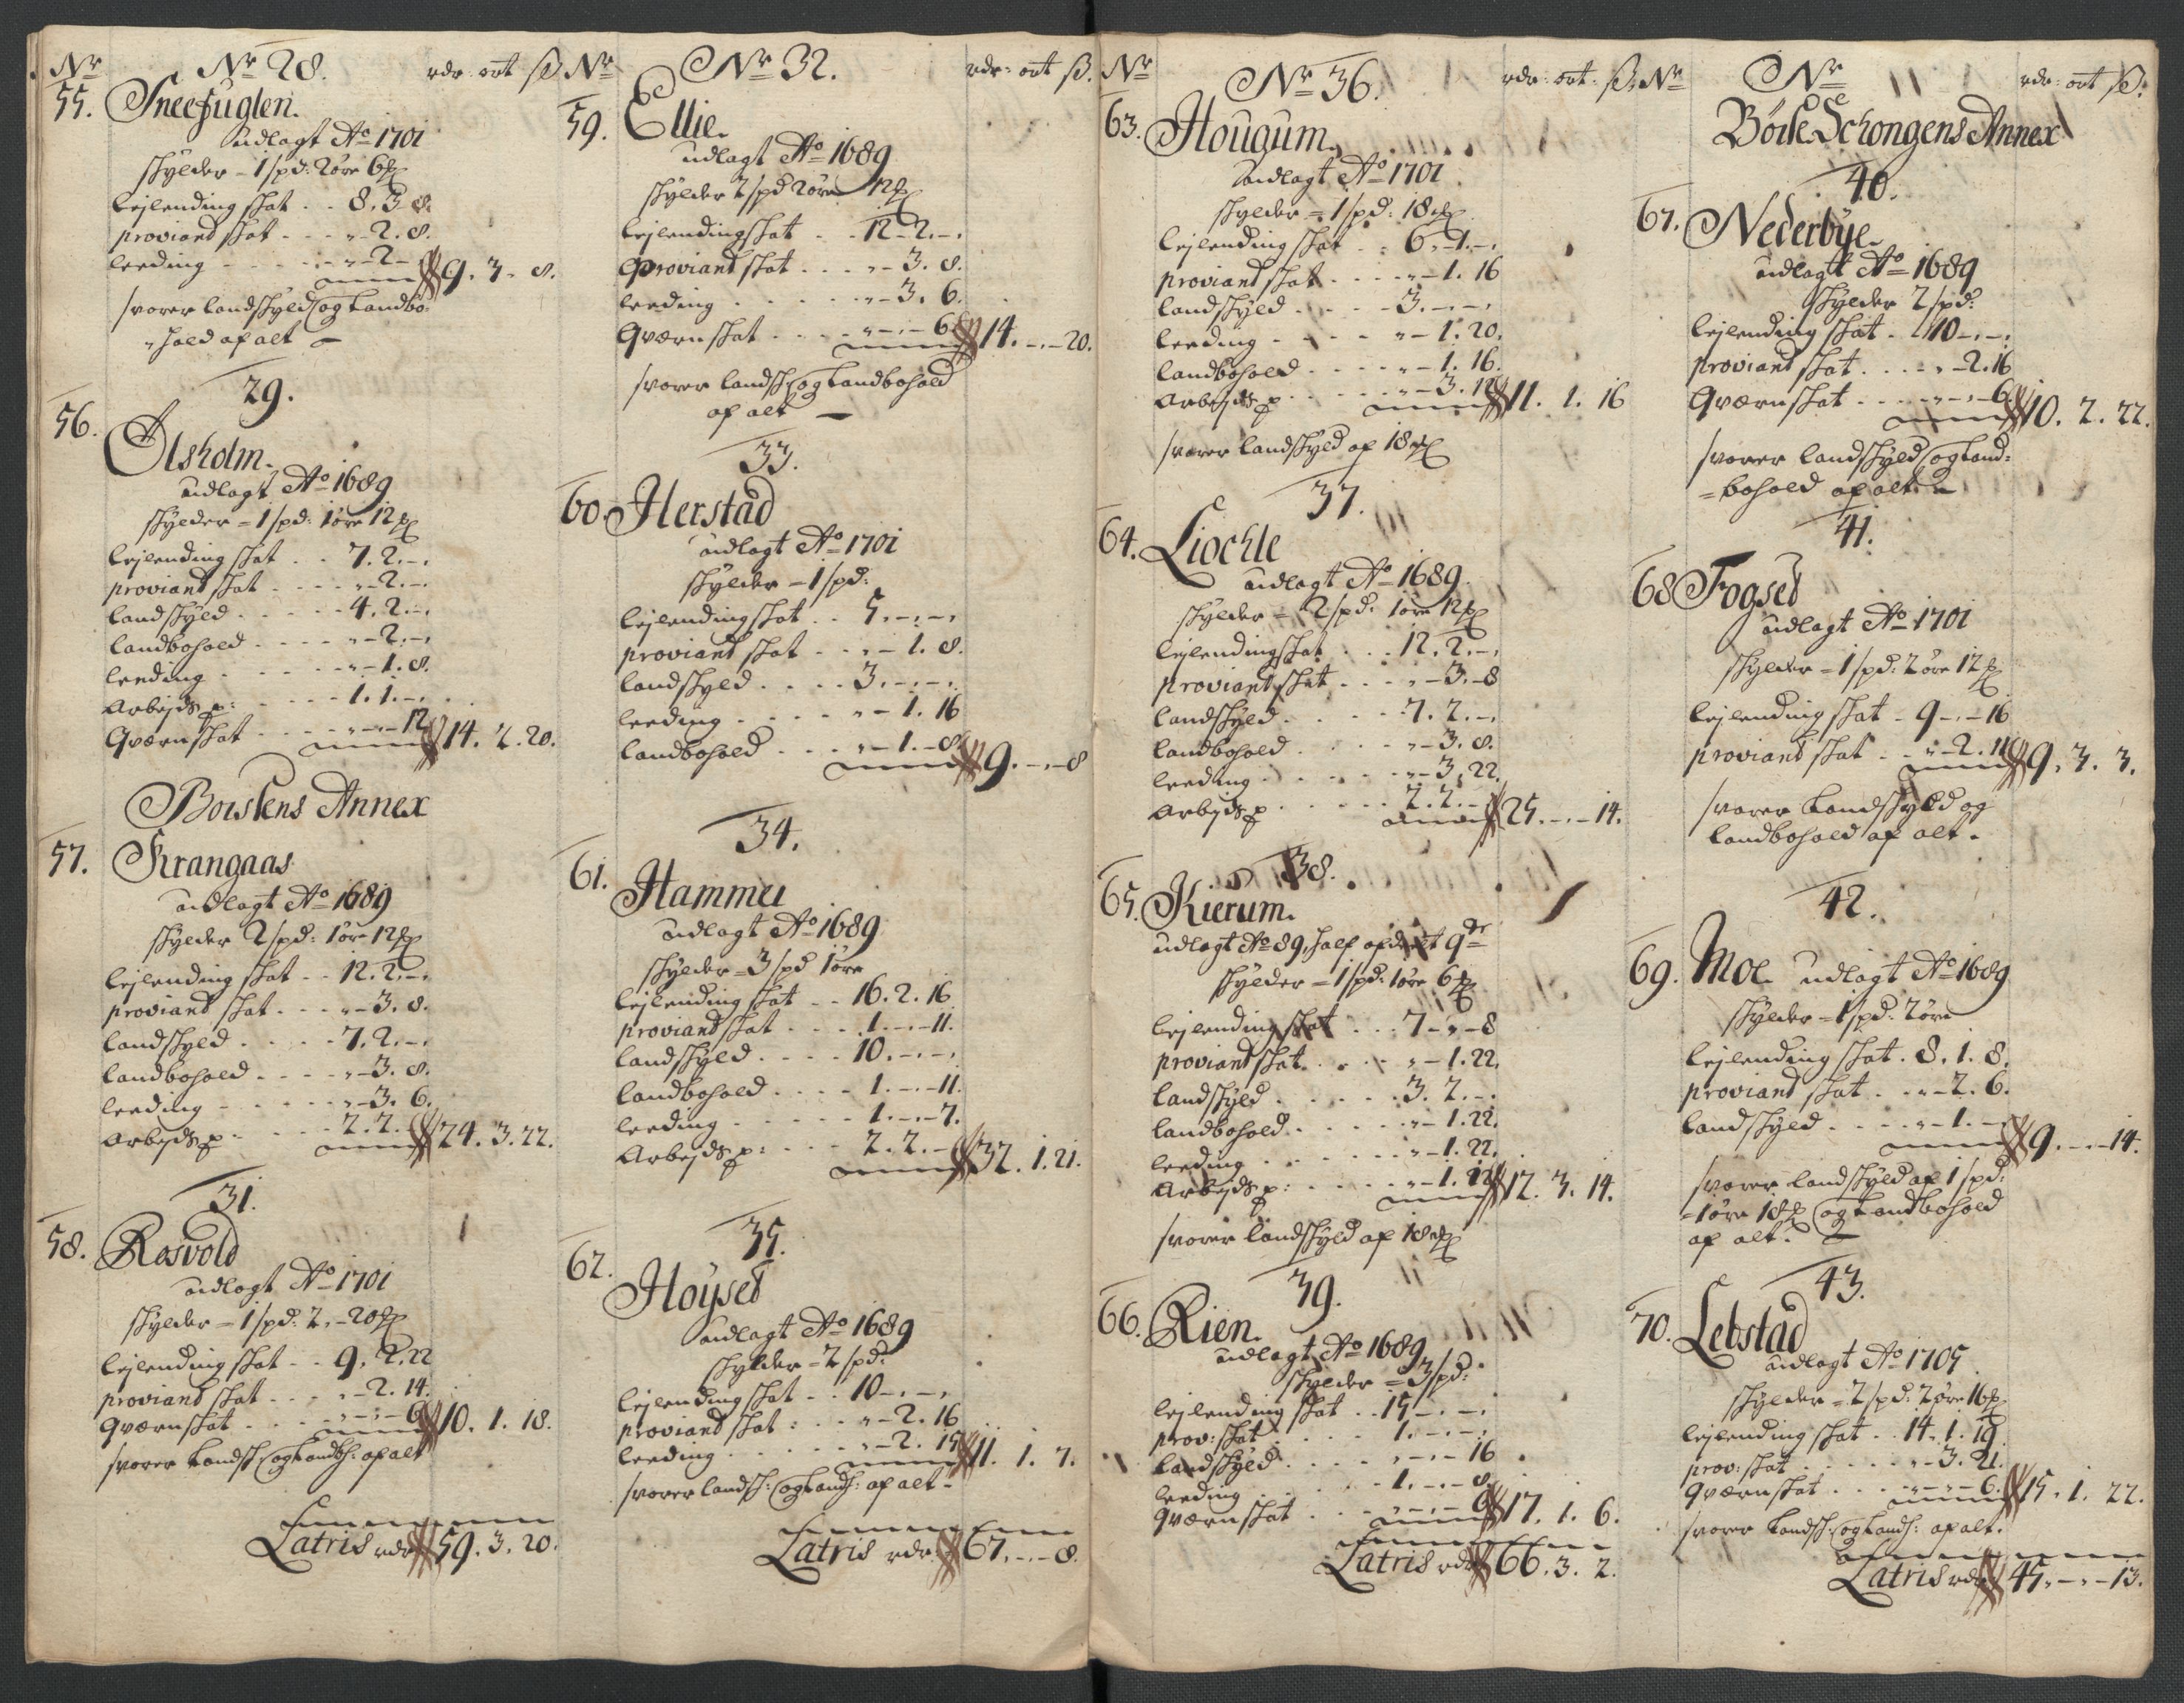 Nr Nr 28. rdr: ort ß
55. Sneefuglen.
udlagt Ao 1701
skylder - 1 spd: 2 øre 6 ₰
Lejlending skat . . 8. 3 8.
proviant skat . . . „ - 2. 8.
leeding . . . . „ - 2 - 9. 3. 8.
svarer landskyld og Landbo-
hold af alt -
29.
56. Olsholm.
udlagt Ao 1689
skylder - 1 spd: 1 øre 12 ₰
Lejlending skat . . 7. 2. -.
proviant skat . . . „ - 2. -.
landskyld . . . . 4. 2. -.
landbohold . . . . „ - 2. -.
leeding . . . . „ - 1. 8.
Arbejds p: . . . 1. 1. -.
Qværnskat . . . „ - „ - 12 14. 2. 20.
Børstens Annex
57. Krangaas
udlagt Ao 1689
skylder 2 spd: 1 øre 12 ₰
Lejlending skat . . 12. 2. -.
proviant skat . . . „ - 3. 8.
landskyld . . . . 7. 2. -.
landbohold . . . . „ - 3. 8.
leeding . . . . . „ - 3. 6.
Arbejds p . . . . 2. 2. 24. 3. 22.
31.
58. Rosvold
udlagt Ao 1701
skylder - 1 spd: 2. - 20 ₰
Lejlending skat . . 9. 2. 22
proviant skat . . . „ - 2. 14.
Qværnskat . . . „ - „ - 6 10. 1. 18.
svarer Landsk: og Landbh: af alt
Latris rdr 59. 3. 20.
Nr Nr 32. rdr: ort ß.
59. Ellie.
udlagt Ao 1689
skylder 2 spd 2 øre 12 ₰
Lejlending skat . . 12 - 2. -.
Proviant skat . . . „ - 3. 8.
leeding . . . . . „ - 3. 6.
Qværnskat . . . . „ - „ - 6 14. - „ - 20.
svarer landsk: og Landbohold
af alt -
33.
60. Herstad
udlagt Ao 1701
skylder - 1 spd:
Lejlending skat . . 5. - „ -.
proviant skat . . . „ - 1. 8.
landskyld . . . . 3. - „ -.
leeding . . . . „ - 1. 16
landbohold . . . „ - 1. - 8. 9. - „ - 8
34.
61. Hammer
udlagt Ao 1689
skylder - 3 spd 1 øre
Lejlending skat . . 16. 2. 16
proviant skat . . . 1. - „ - 11.
landskyld . . . . 10. - „ -.
landbohold . . . . 1. - „ - 11.
leeding . . . . . 1. - „ - 7.
Arbejds p: . . . 2. 2. - 32. 1. 21.
35.
62. Høyset
udlagt Ao 1689
skylder - 2 spd:
Lejlending skat . . 10 - „ -.
proviant skat : . . „ - 2. 16
leeding . . . . . „ - 2. 15 11. 1. 7.
svarer landsk: og Landh: af alt -
Latris rdr 67. - „ - 8.
Nr Nr 36. rdr: ort: ß:
63. Hougum.
udlagt Ao 1701
skylder - 1 spd: 18 ₰
Lejlending skat . . 6. - 1. -.
proviant skat . . . „ - 1. 16
landskyld . . . . 3. - „ -.
leeding . . . . „ - 1. 20.
landbohold . . . . „ - 1. 16.
Arbejds p . . . . „ - 3. 12 11. 1. 16
svarer landskyld af 18 ₰
37.
64. Liochle
udlagt Ao 1689.
skylder - 2 spd: 1 øre 12 ₰
Lejlending skat . . 12. 2. -.
proviant skat . . . „ - 3. - 8
landskyld . . . . 7. 2. -.
landbohold . . . . „ - 3. 8.
leeding . . . . . „ - 3. 22.
Arbejds p . . . . 2. 2. - 25. - „ - 14.
38.
65. Kierum.
udlagt Ao 89, half afdragt 9
skylder - 1 spd: 1 øre 6 ₰
Lejlending skat . . . 7 - „ - 8
proviant skat . . . „ - 1. 22.
landskyld . . . . 3. 2. -.
landbohold . . . . „ - 1. 22.
leeding . . . . . „ - 1. 22.
Arbejds p: . . . . „ - 1. 12. 3. 14.
svarer landskyld af 18 ₰
39.
66. Rien.
udlagt Ao 1689
skylder - 3 spd:
Lejlending skat . . 15 - „ -.
prov: skat . . . . 1. - „ -.
landskyld . . . . „ - „ - 16
leeding . . . . . 1. - „ - 8.
Qværnskat . . . „ - „ - 6 17. 1. 6.
Latris rdr 66. 3. 2.
Nr Nr rdr: ort ß.
Böcke Schongens Annex
40.
67. Nederbye.
udlagt Ao 1689
skylder 2 spd:
Lejlending skat . 10 - „ -.
proviant skat . . . „ - 2. 16
Qværnskat . . . . „ - „ - 6. 10. 2. 22.
svarer landskyld og Land:
= bohold af alt -
41.
68 Fogset
udlagt Ao 1701
skylder - 1 spd: 2 øre 12 ₰
Lejlending skat - 9 - „ - 16
proviant skat . . „ - 2. 11 9. 3. 3.
svarer Landskyld og
landbohold af alt -
42.
69. Moe udlagt Ao 1689
skylder - 1 spd: 2 øre
Lejlending skat . 8. 1. 8.
proviant skat . . „ - 2. 6.
landskyld . . . „ - 1. - 9. - „ - 14.
svarer landskyld af 1 spd:
= 1 øre 18 ₰ og Landbohold
af alt. -
43.
70. Letstad
udlagt Ao 1705
skylder - 2 spd: 2 øre 16 ₰
Lejlending skat . . 14. 1. 19.
prov: skat . . . . „ - 3. 21.
Qværnskat . . . „ - „ - 6. 15. 1. 22.
svarer Landsk: og Landh: af alt.
Latris rdr 45. - „ - 13.